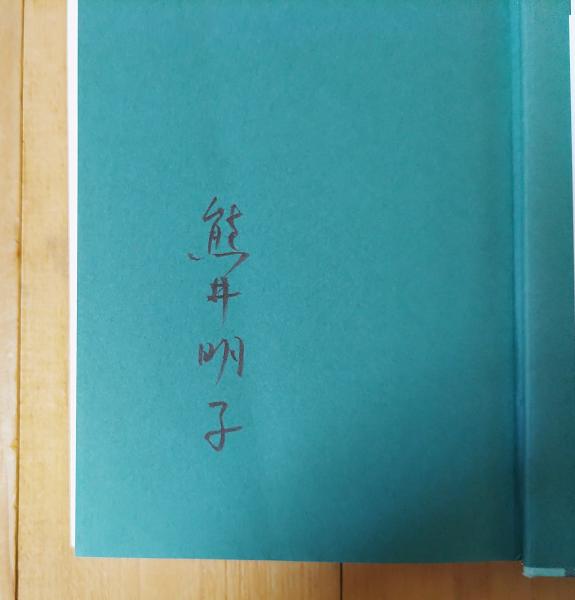 熊井明子